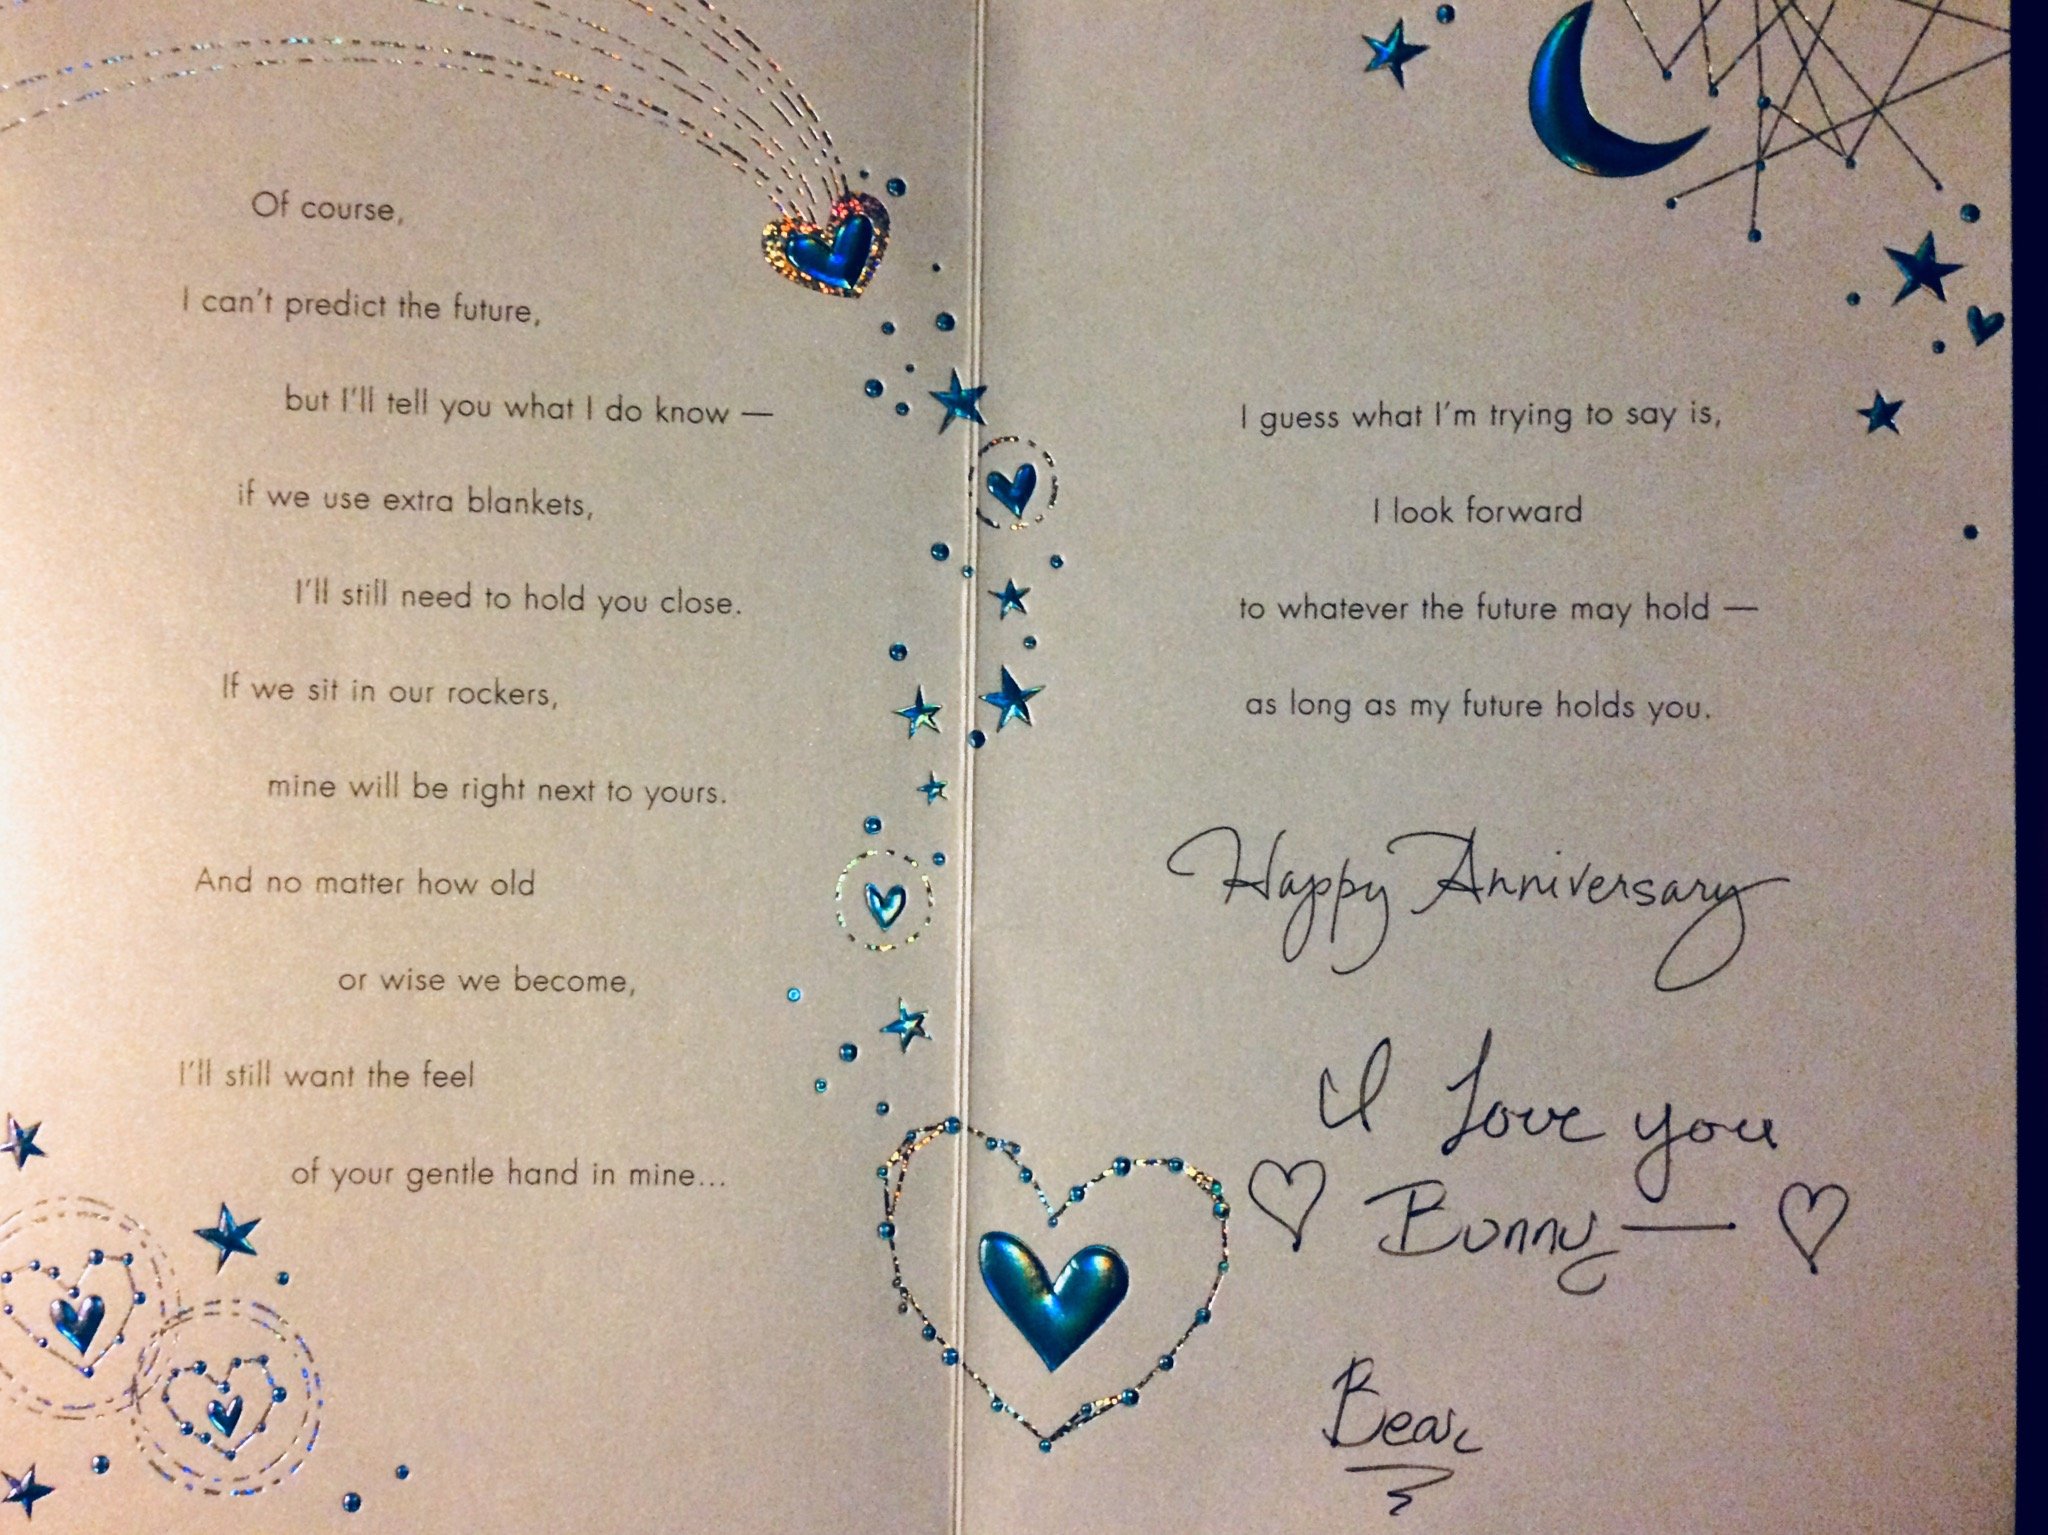 Of course,
I can't predict the future,
but I'll tell you what I do know —
if we use extra blankets,
I'll still need to hold you close.
If we sit in our rockers,
mine will be right next to yours.
And no matter how old
or wise we become,
I'll still want the feel
of your gentle hand in mine...
I guess what I'm trying to say is,
I look forward
to whatever the future may hold —
as long as my future holds you.
Happy Anniversary
I Love you
♡ Bunny — ♡
Bear